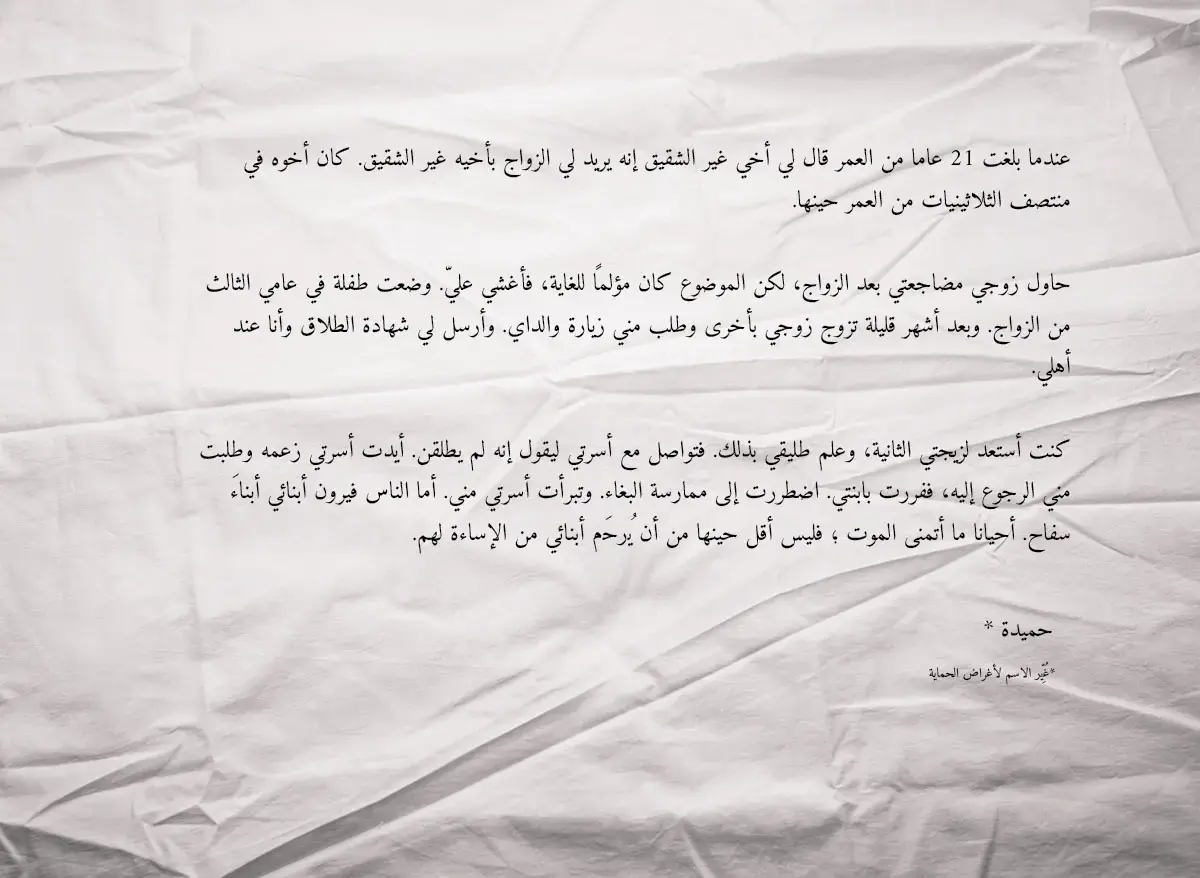 عندما بلغت 21 عاما من العمر قال لي أخي غير الشقيق إنه يريد لي الزواج بأخيه غير الشقيق. كان أخوه في
منتصف الثلاثينيات من العمر حينها.
حاول زوجي مضاجعتي بعد الزواج، لكن الموضوع كان مؤلمًا للغاية، فأغشي عليّ. وضعت طفلة في عامي الثالث
من الزواج. وبعد أشهر قليلة تزوج زوجي بأخرى وطلب مني زيارة والداي. وأرسل لي شهادة الطلاق وأنا عند
أهلي.
كنت أستعد لزيجتي الثانية، وعلم طليقي بذلك. فتواصل مع أسرتي ليقول إنه لم يطلقن. أيدت أسرتي زعمه وطلبت
مني الرجوع إليه، ففررت بابنتي. اضطررت إلى ممارسة البغاء. وتبرأت أسرتي مني. أما الناس فيرون أبنائي أبناءَ
سفاح. أحيانا ما أتمنى الموت ؛ فليس أقل حينها من أن يُرحَم أبنائي من الإساءة لهم.
حميدة *
*غُيِّر الاسم لأغراض الحماية